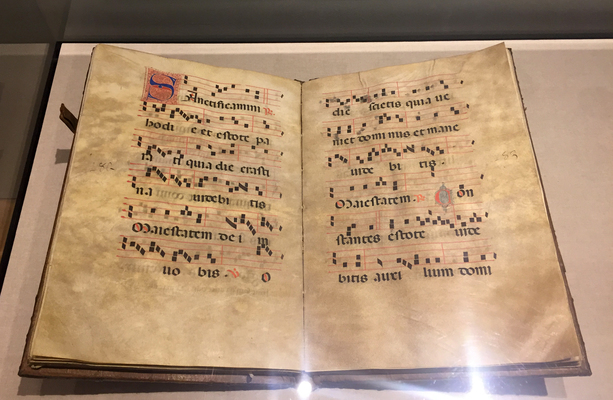 Sanctificamini
hodi e et estote pa
ra ti quia die crasti
na uidebi tis
Maiestatem de i in
uo bis. O
die scietis quia ue
niet dominus et mane
uide bi tis.
Maiestatem. Con
stantes estote uide
bitis auxi lium domi